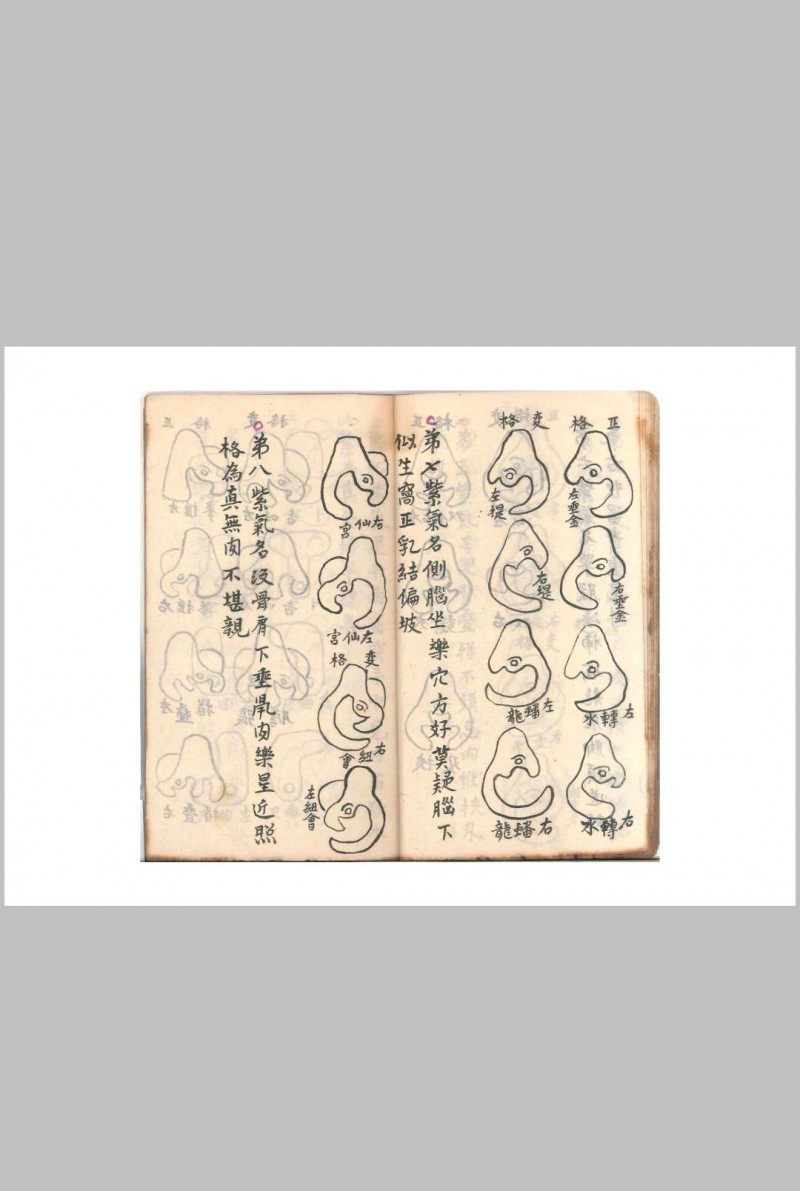 正格
左垂金
右垂金
左轉水
右轉水
变格
左堤
右堤
左蟠龍
右蟠龍
第七紫氣名側腦坐樂穴方好莫疑腦下
似生窩正乳結偏坡
右仙宮
左仙宮
変格
右紐會
左紐會
第八紫氣名没骨肩下垂鼡肉樂星近照
格為真無肉不堪親